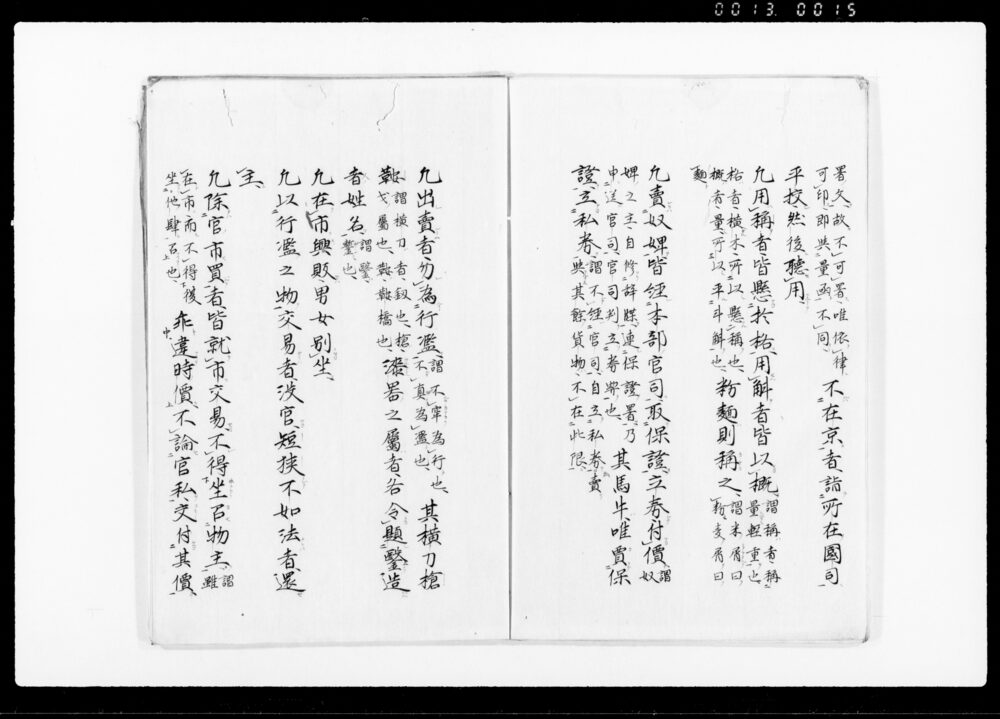 0013 0015
署文、故不可署、唯依律
可印、即與量函不同、不在京者、詣所在國司
平挍、然後聽用、
凢用稱者皆懸於格、用斛者皆以概、謂稱者、稱量輕重也、
格者、橫木、所以懸稱也、
概者、量、所以平斗斛也、粉麵則稱之、謂米屑曰粉、麦屑曰
麵、
凢賣奴婢、皆經本部官司、取保證、立券付價、謂奴
婢之主、自修辞牒、連保證署、乃
申送官司、官司判立券与也、其馬牛唯買保
證、立私券、謂不經官司、自立私券賣
与、其餘貨物、不在此限、
凢出賣者、勿為行濫、謂不牢為行也、不真為濫也、其橫刀槍
鞍、謂橫刀者釼也、槍
戈属也、鞍鞍橋也、漆器之屬者、各令題鑿造
者姓名、謂鑿
鏨也、
凢在市興敗、男女別坐、
凢以行濫之物交易者、没官、短狭不如法者、還
主、
凢除官市買者、皆就市交易、不得坐召物主、謂雖
在市、而不得後
坐他肆召也、乖違時價、不論官私、交付其價、